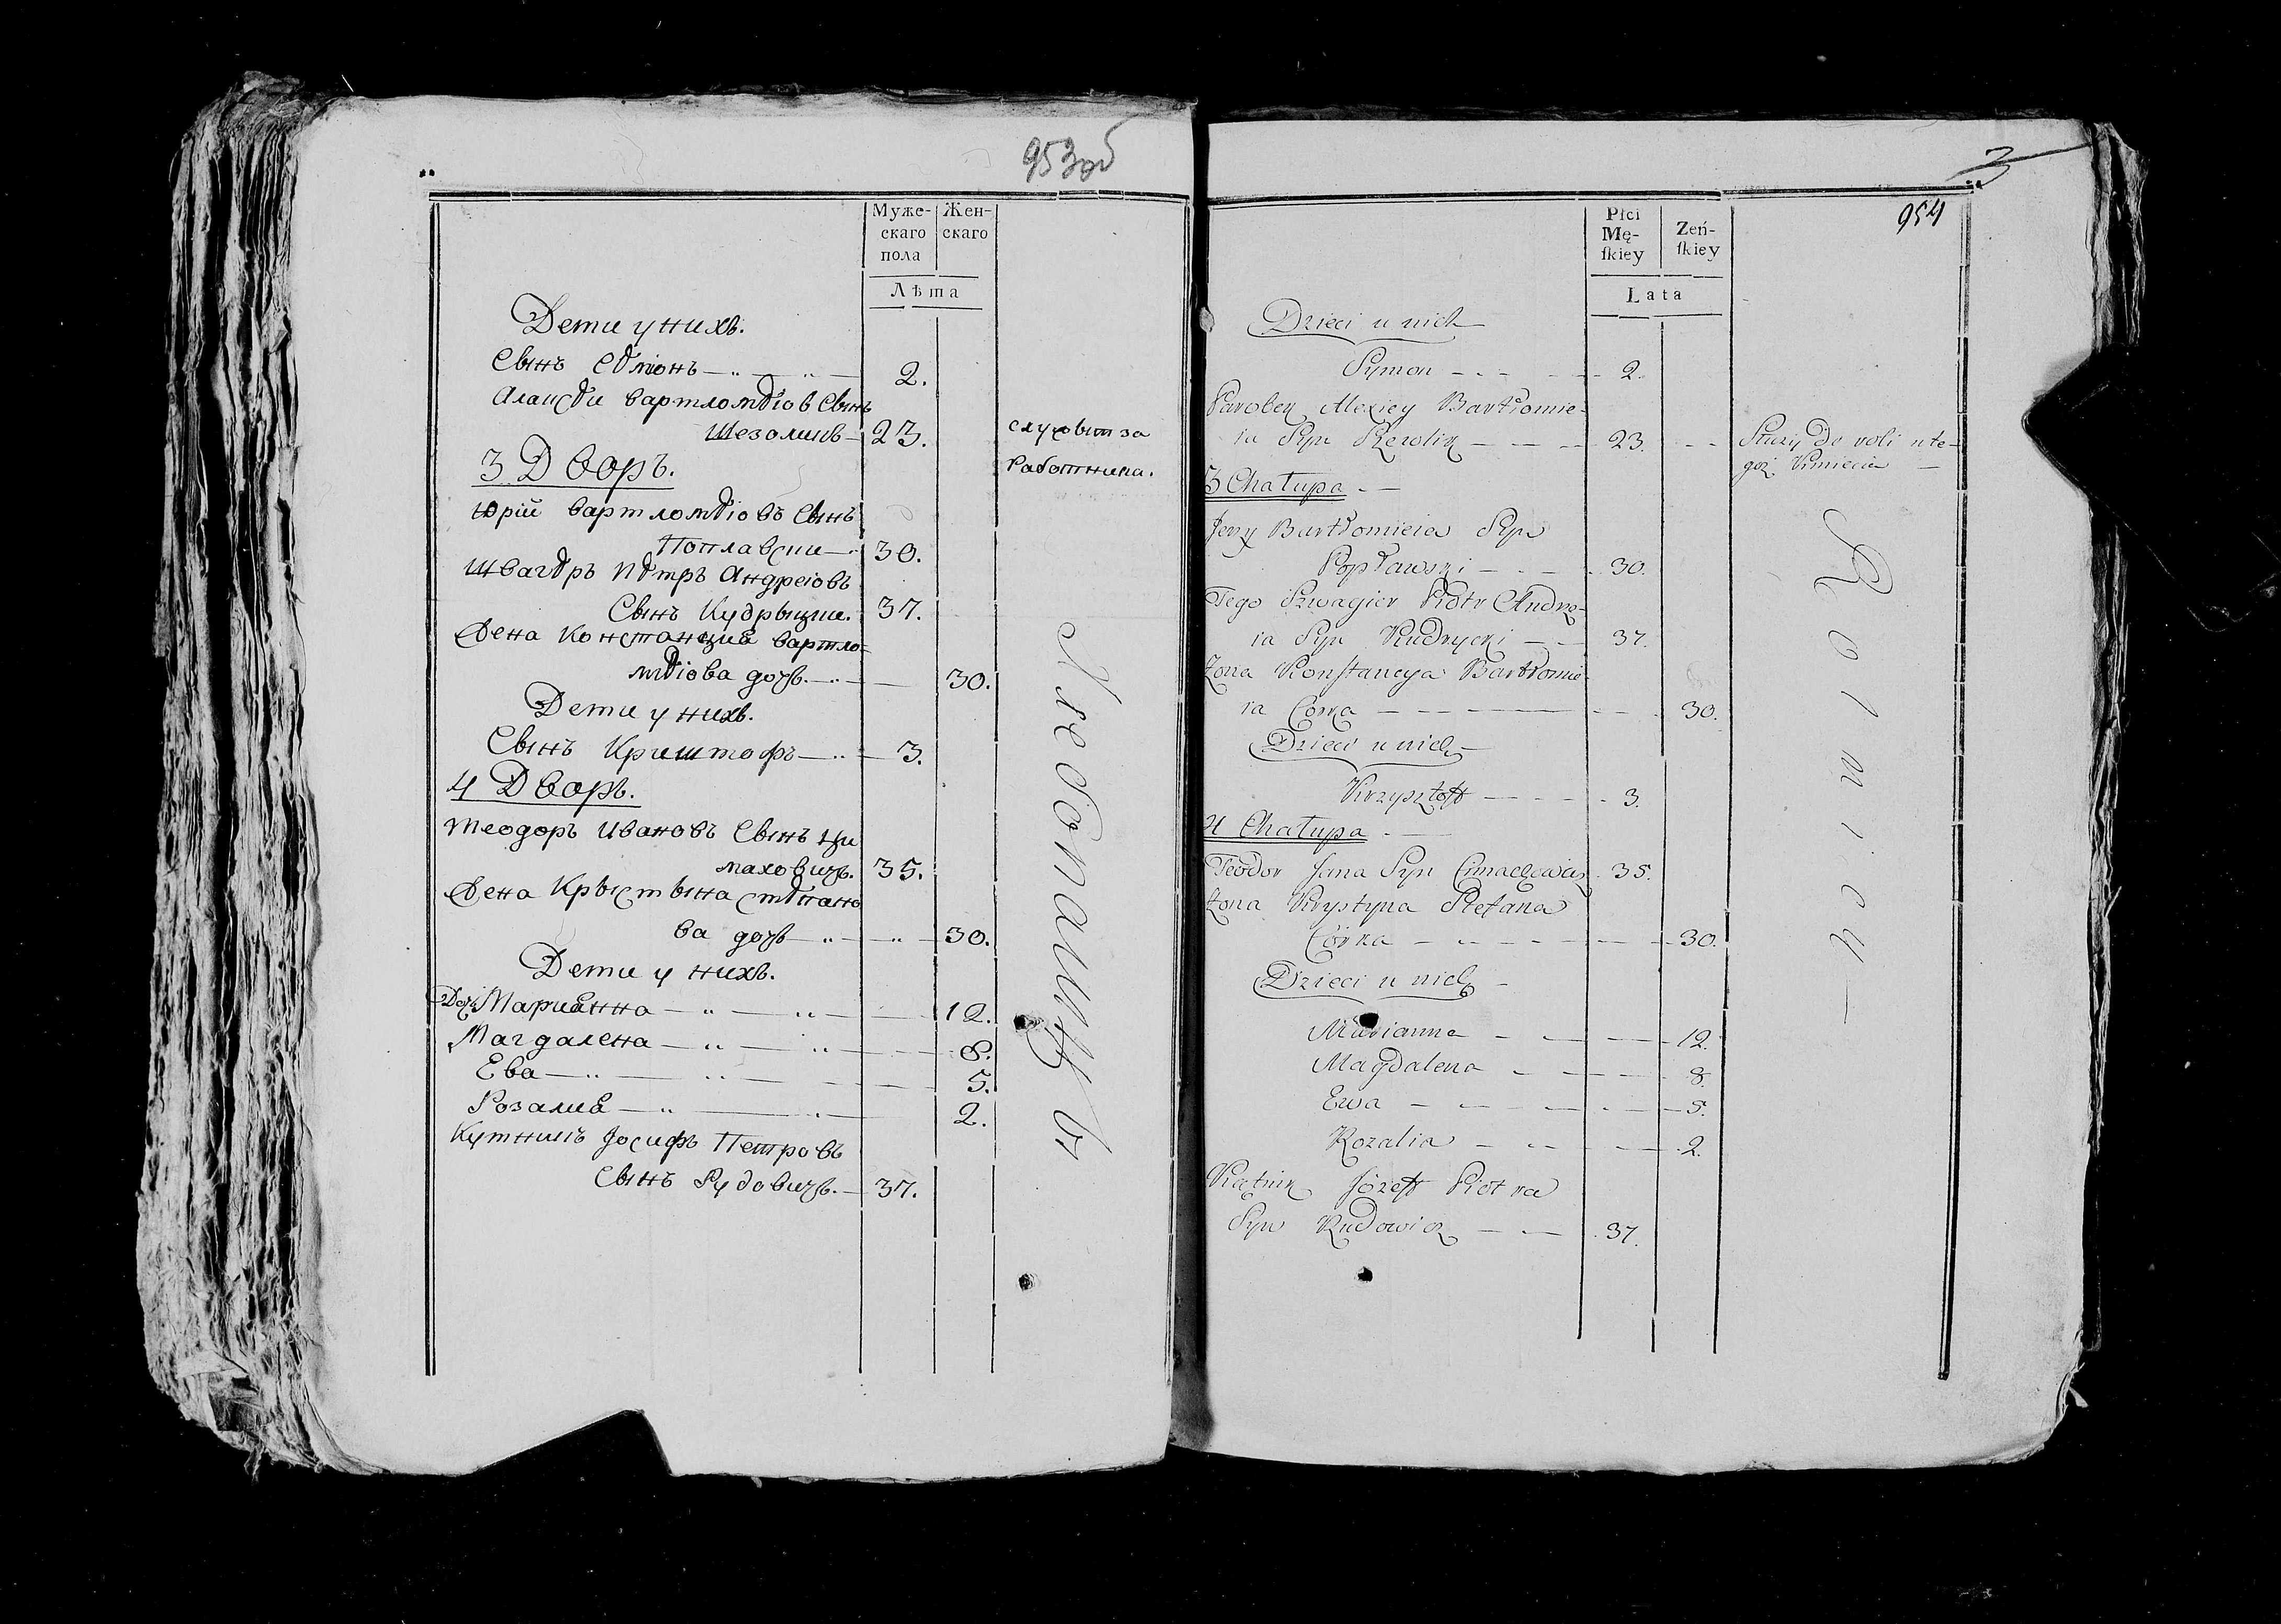 953об
Муже-
скаго
пола
Жен-
скаго
Лѣта
Дети у нихъ.
Сынъ Семіонъ 2.
Алаксеи Вартломеіов Сынъ
23.
служыт за
работника.
3 Дворъ.
Юрій Вартломеіовъ Сынъ
Поплавски 30.
Швагеръ Петръ Андреіовъ
Сынъ Кудрыцки. 37.
Жена Констанциа Вартло-
меіова дочь. 30.
Дети у нихъ.
Сынъ Криштофъ 3.
4 Дворъ.
Теодоръ Ивановъ Сынъ Ци
маховичъ. 35.
Жена Крыстына Степано
ва дочь 30.
Дети у нихъ.
Дочь Марианна 12.
Магдалена 8.
Ева 5.
Розалиа 2.
Кутникъ Іосифъ Петровъ
Сынъ Рудовичъ. 37.
Хлебопашцы
3
954
Płci
Mę-
ſkiey
Zeń-
ſkiey
Lata
Dzieci u nich
Symon 2.
Parobek Alexiey Bartłomie-
ia Syn 23.
Służy do roli u te-
goż
3 Chałupa
Jerzy Bartłomieia Syn
Popławski 30.
Tego Szwagier Piotr Andrze-
ia Syn Kudrycki 37.
Zona Konſtancya Bartłomie-
ia Corka 30.
Dzieci u nich
Krzysztoff 3.
4 Chałupa
Teodor Jana Syn Cimachowicz 35.
Zona Krystyna Stefana
Córka 30.
Dzieci u nich
Marianna 12.
Magdalena 8.
Ewa 5.
Rozalia 2.
Kątnik Józeff Piotra
Syn Rudowicz 37.
Rolnicy